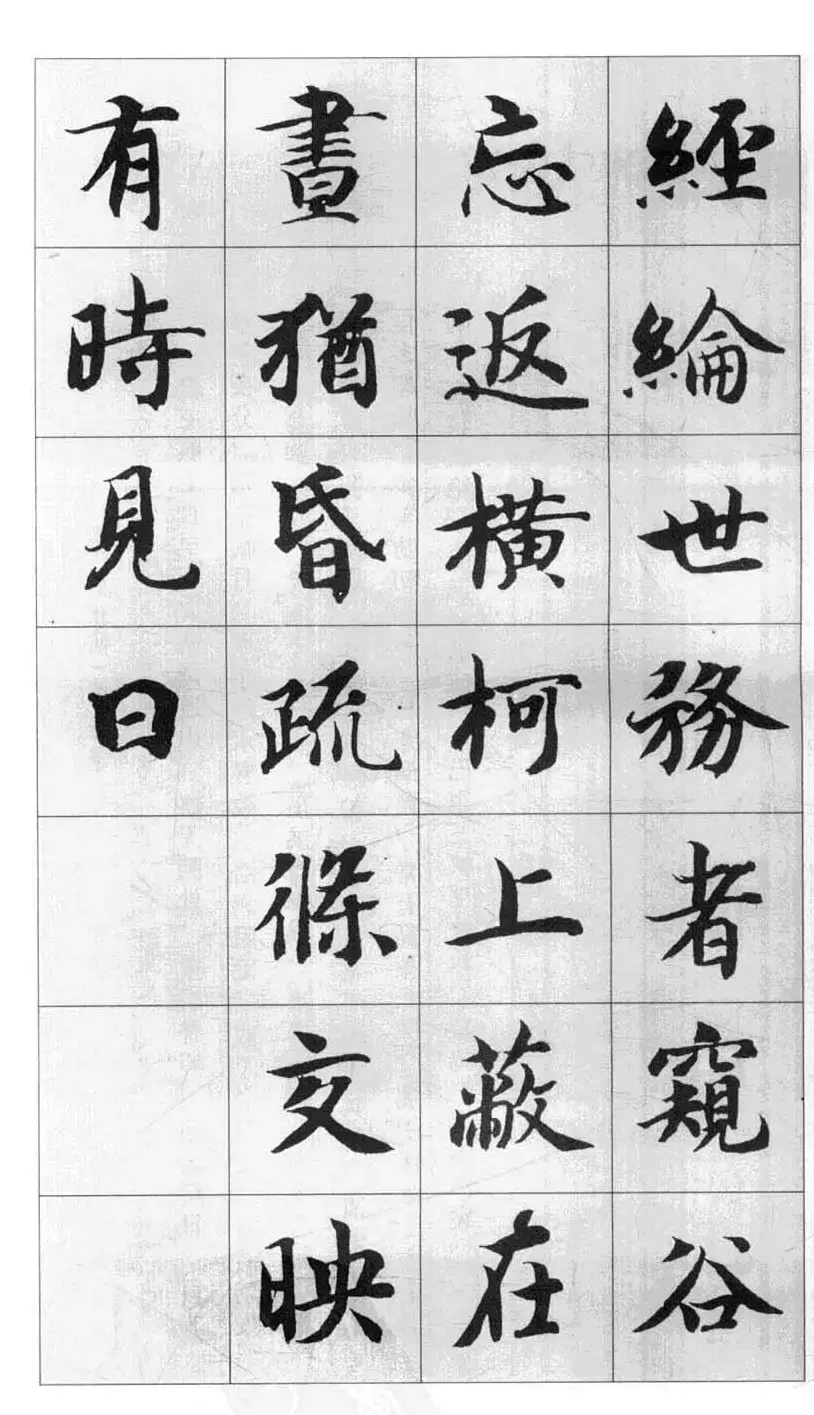 經綸世務者窺谷
忘返橫柯上蔽在
晝猶昏疏條交映
有時見日